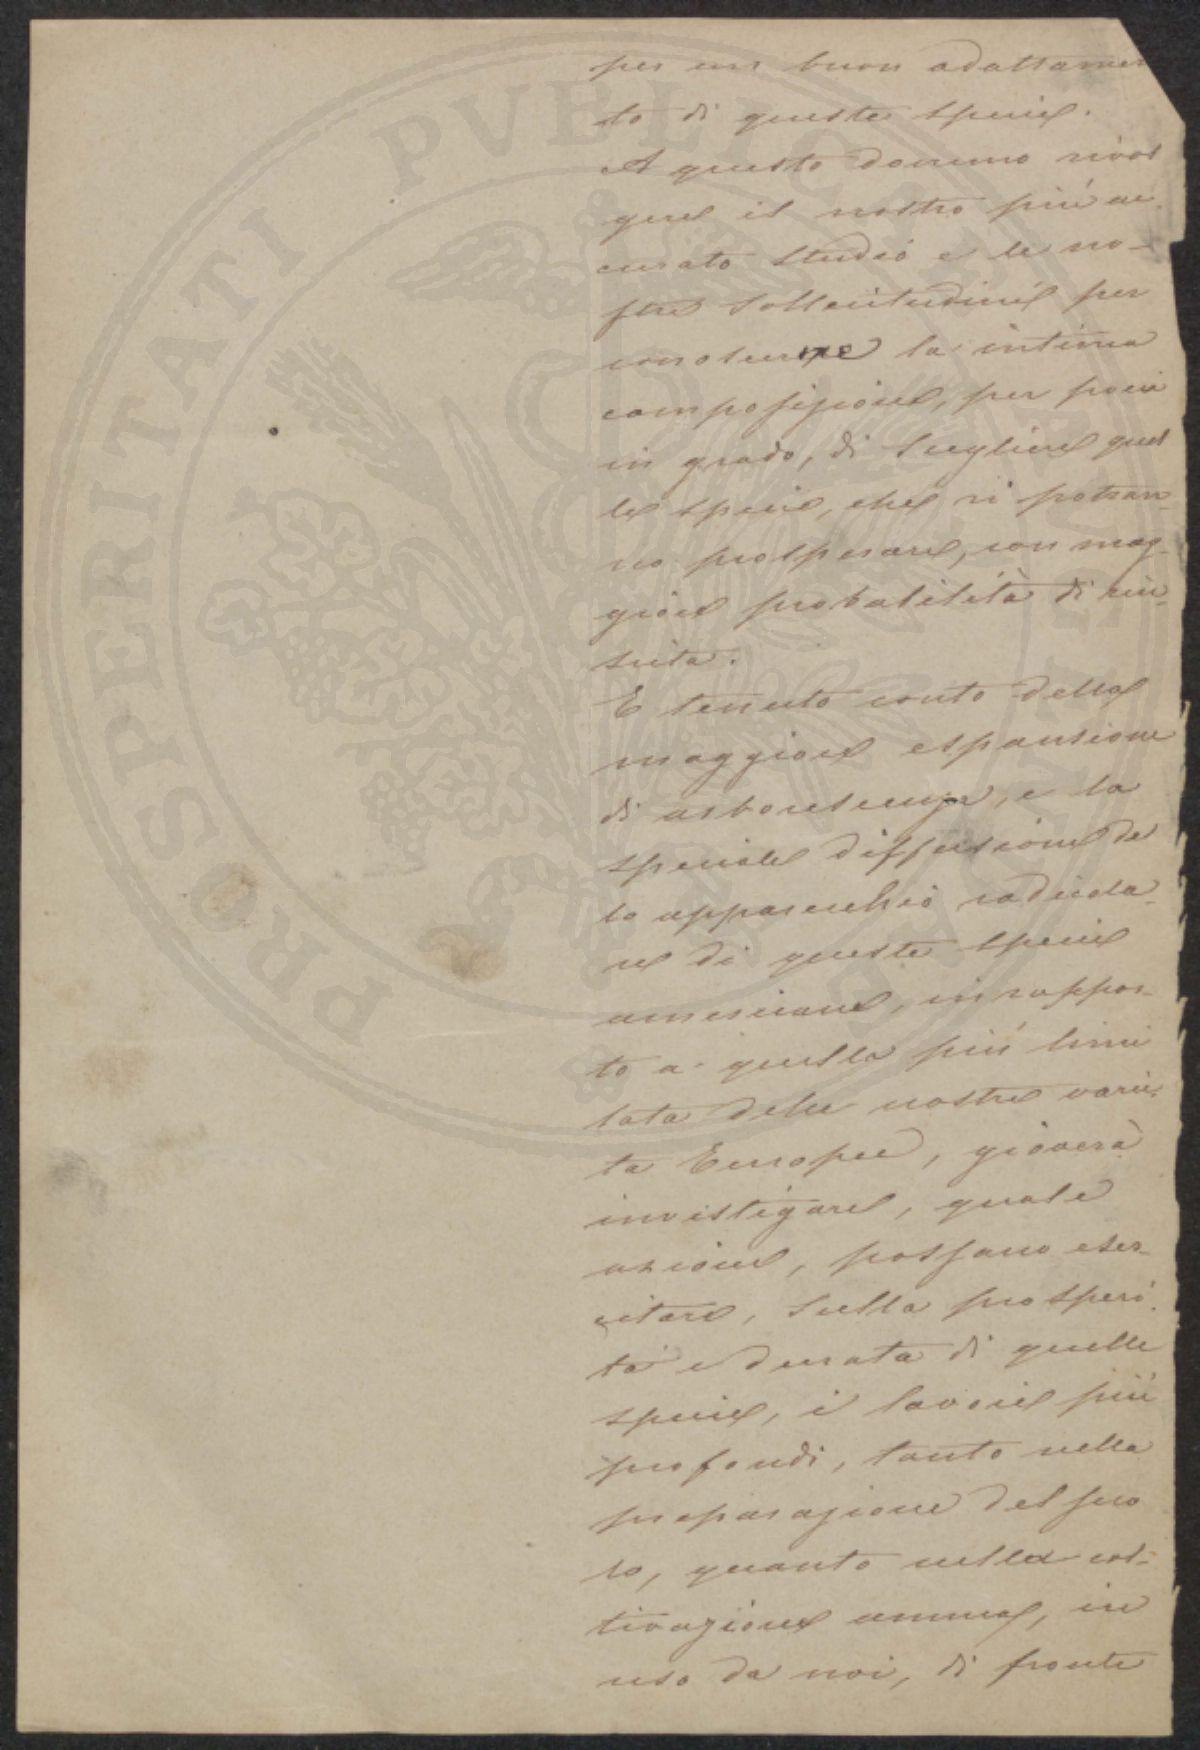 per un buon adattamen
to di queste specie.
A questo devono rivol
gere il nostro più ac-
curato studio e le no-
stre sollecitudini per
conoscerne la intima
composizione, per porci
in grado, di scegliere quel
le specie, che vi potran-
no prosperare, con mag-
giore probabilità di riu-
scita.
E tenuto conto della
maggiore espansione
di arborescenza, e la
speciale diffusione del
lo apparecchio radicola-
re di queste specie
americane, in rappor-
to a quella più limi
tata delle nostre varie-
tà Europee, gioverà
investigare, quale
azione, possano eser-
citare, sulla prosperi-
tà e durata di quelle
specie, i lavori più
profondi, tanto nella
preparazione del suo
lo, quanto nella col-
tivazione annua, in
uso da noi, di fronte
PROSPERITATI PVBLICAE